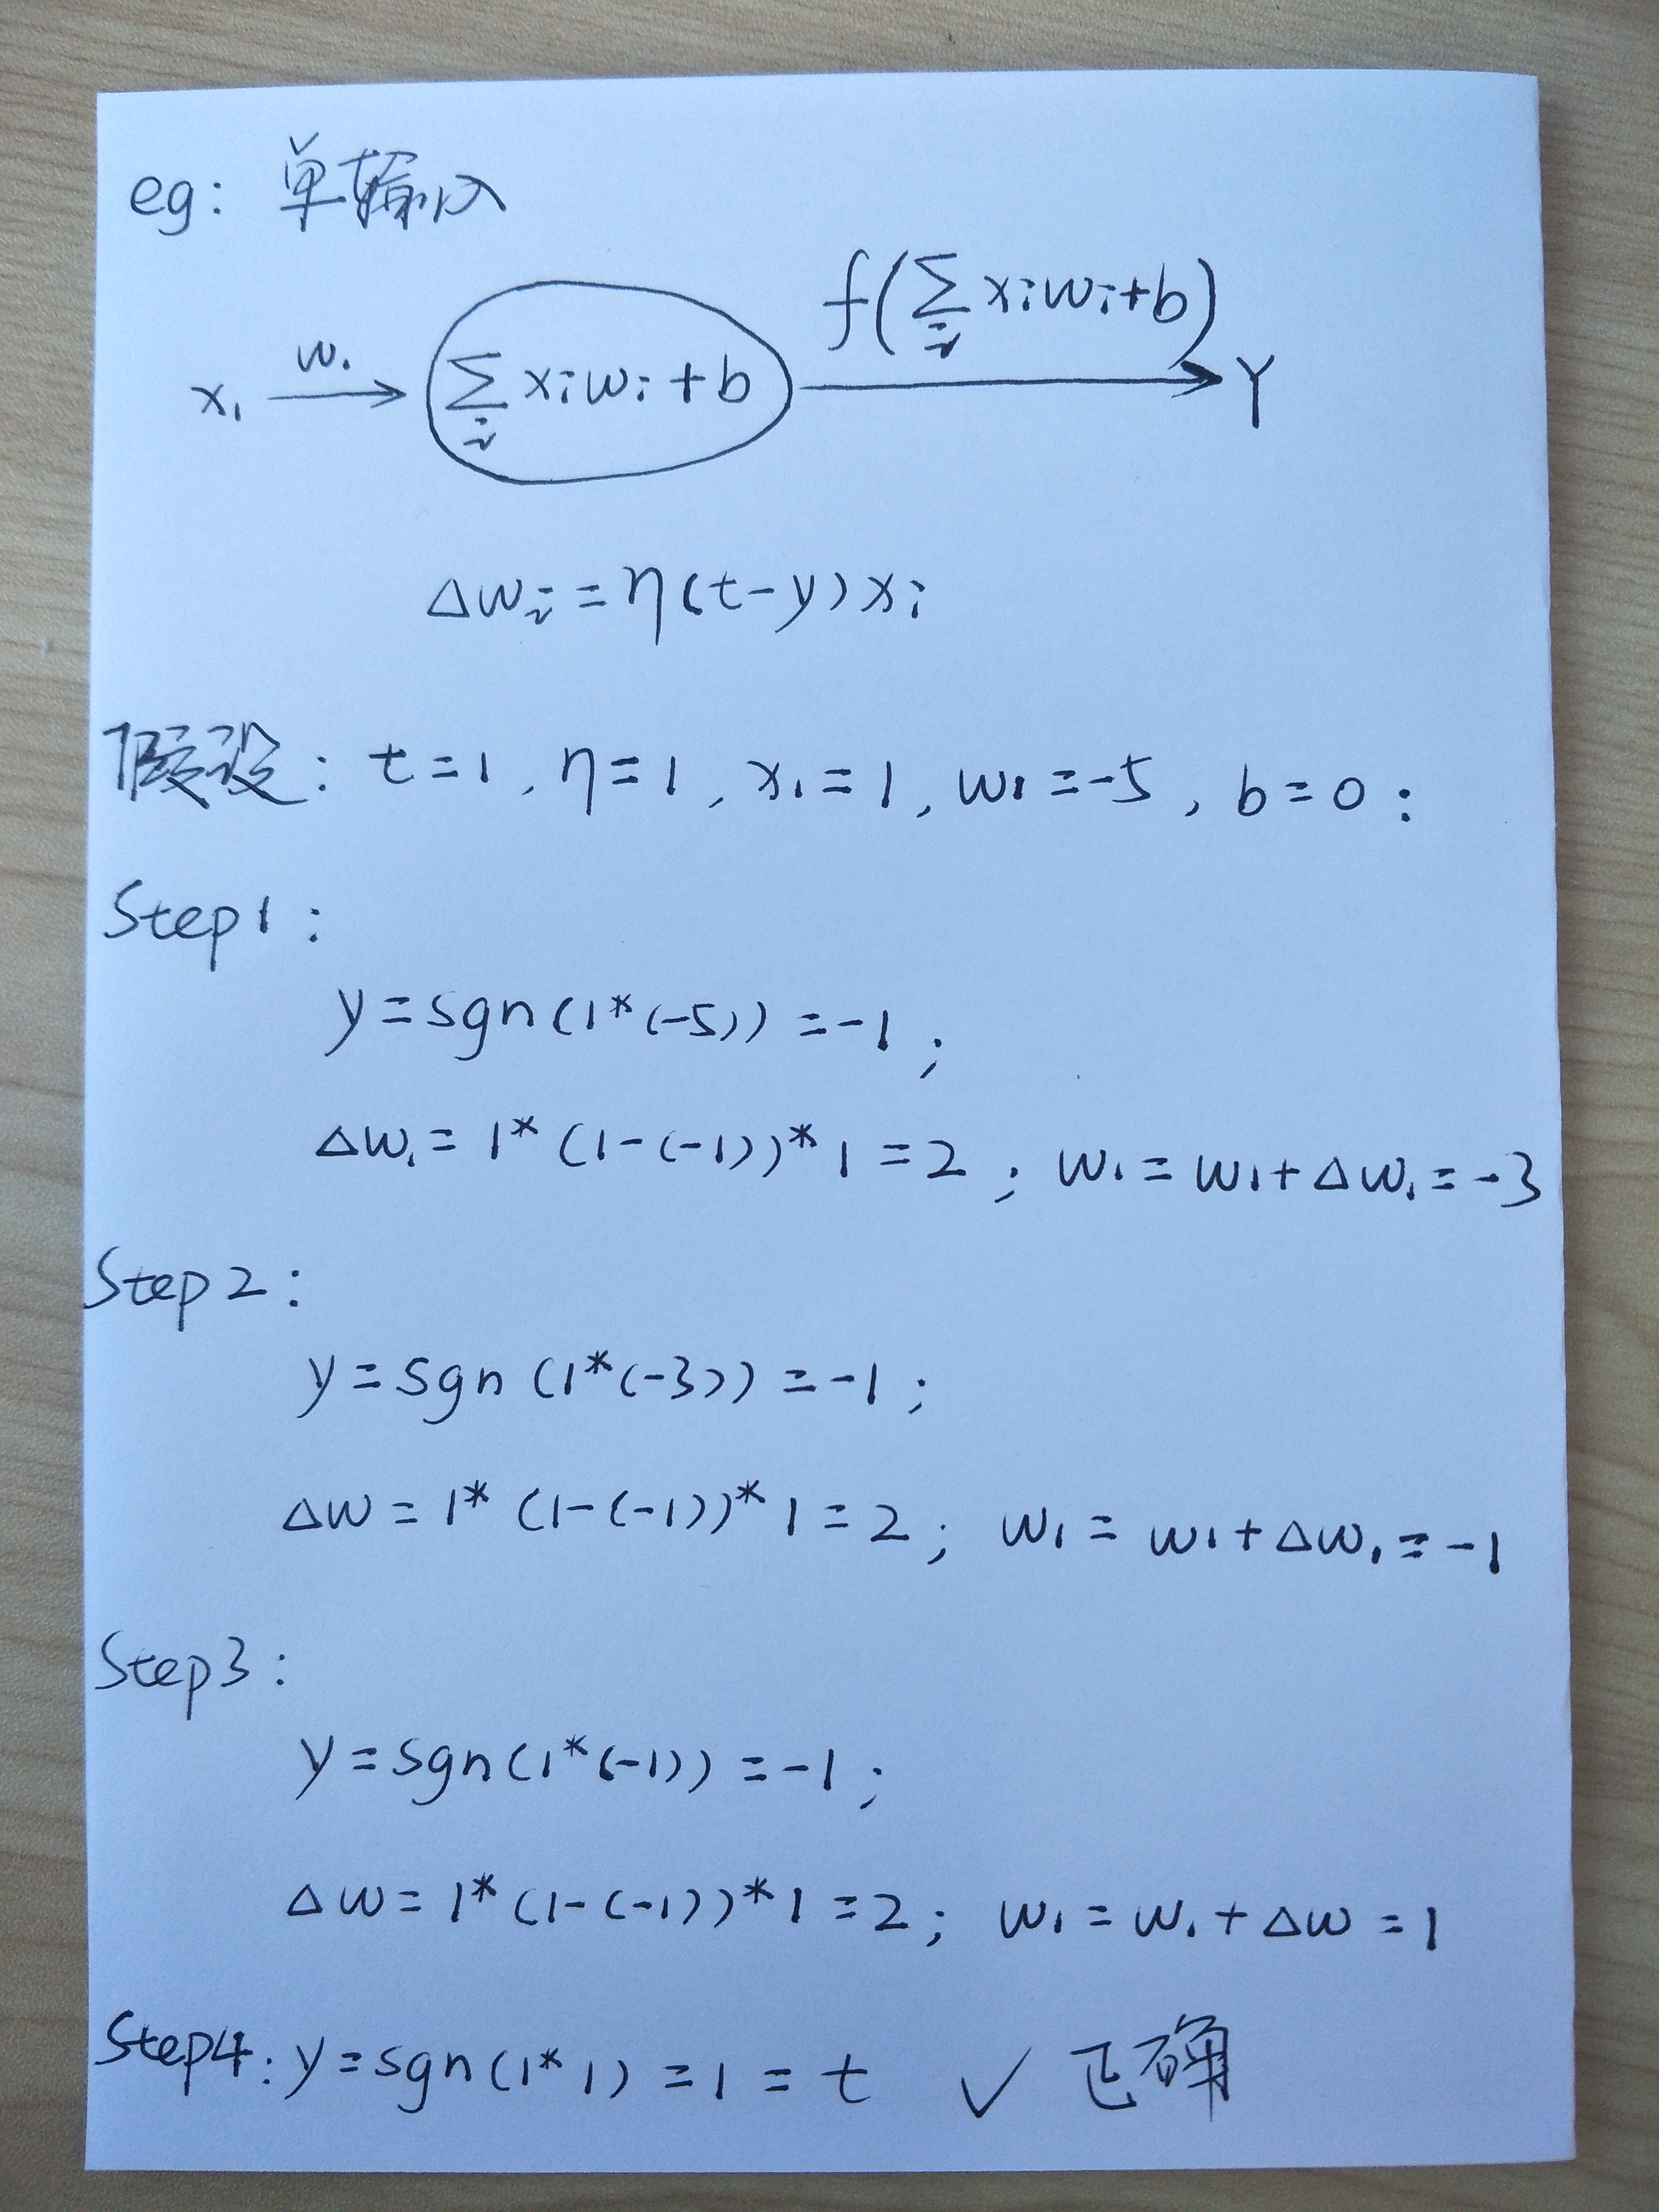 eg: 单输入
f(∑i xiwi+b)
x₁ w₁ → ∑i xiwi+b → Y
△wi=η(t-y)xi
假设: t=1, η=1, x₁=1, w₁=-5, b=0:
Step1:
y=sgn(1*(-5))=-1;
△w₁=1*(1-(-1))*1=2; w₁=w₁+△w₁=-3
Step2:
y=sgn(1*(-3))=-1;
△w=1*(1-(-1))*1=2; w₁=w₁+△w₁=-1
Step3:
y=sgn(1*(-1))=-1;
△w=1*(1-(-1))*1=2; w₁=w₁+△w=1
Step4: y=sgn(1*1)=1=t ✓ 正确